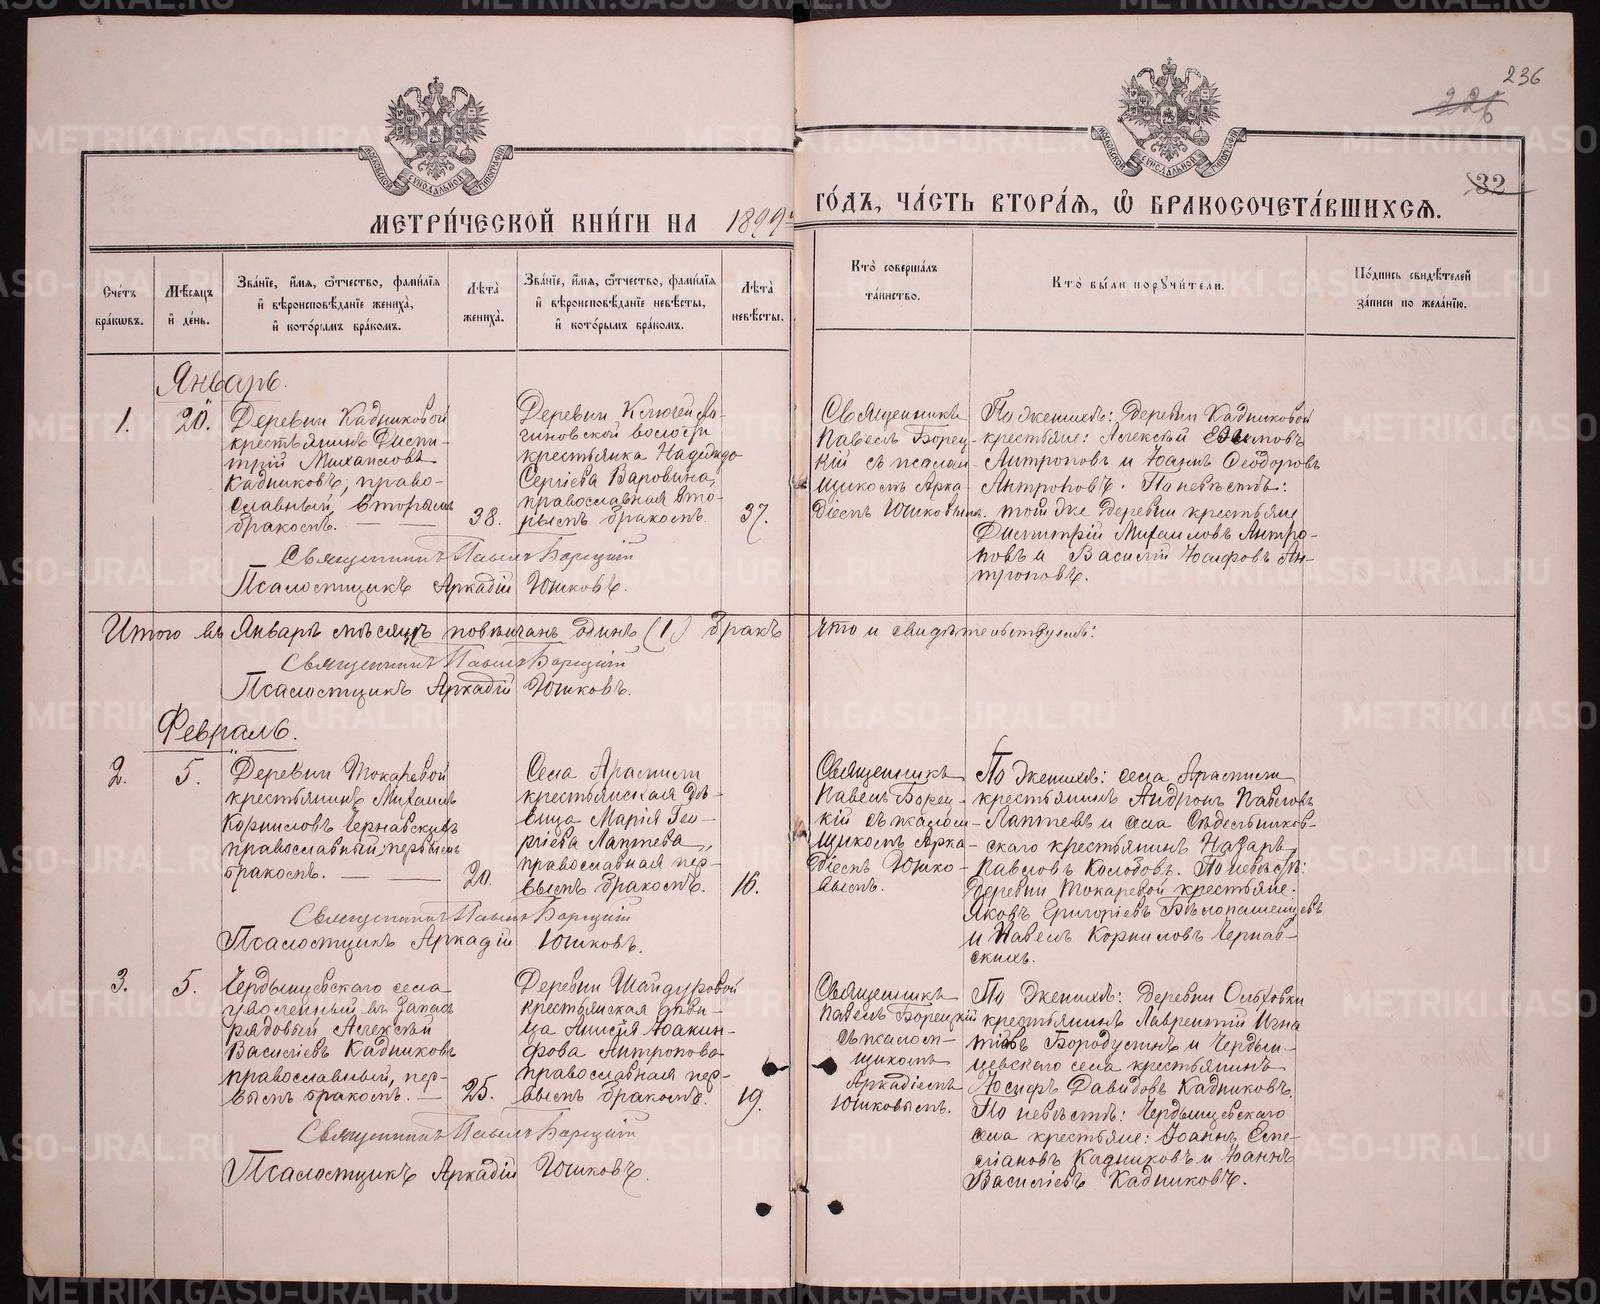 236
226
32
МЕТРИ́ЧЕСКОЙ КНИ́ГИ НА 1899й ГО́ДЪ, ЧА́СТЬ ВТОРА́Я, Ѡ БРАКОСОЧЕТА́ВШИХСЯ.
Сче́тъ бра́кѡвъ.
Мѣ́сяцъ и҆ де́нь.
Зва́нїе, и҆́мѧ, ѻ҆́тчество, фами́лїѧ
и҆ вѣроисповѣ́данїе жениха̀,
и҆ кото́рымъ бра́комъ.
Лѣ́та жениха̀.
Зва́нїе, и҆́мѧ, ѻ҆́тчество, фами́лїѧ
и҆ вѣроисповѣ́данїе невѣ́сты,
и҆ кото́рымъ бра́комъ.
Лѣ́та невѣ́сты.
Кто̀ соверша́лъ та́инство.
Кто̀ бы́ли порꙋчи́тели.
По́дпись свидѣ́телей за́писи по жела́нїю.
Январь.
1.
20.
Деревни Кадниковой
крестьянинъ Дими-
трій Михаиловъ
Кадниковъ, право-
славный, вторымъ
бракомъ.
38.
Деревни Ключей Ла-
гиновской волости
крестьянка Надежда
Сергіева Варовина,
православная вто-
рымъ бракомъ.
37.
Священникъ
Павелъ Борец-
кій съ псалом-
щикомъ Арка-
діемъ Юшковымъ.
По женихѣ: деревни Кадниковой
крестьяне: Алексѣй Евѳимовъ
Антроповъ и Іоаннъ Ѳеодоровъ
Антроповъ. По невѣстѣ:
той же деревни крестьяне
Димитрій Михаиловъ Антро-
повъ и Василій Іосифовъ Ан-
троповъ.
Священникъ Павелъ Борецкій
Псаломщикъ Аркадій Юшковъ.
Итого въ Январѣ мѣсяцѣ повѣнчанъ одинъ (1) бракъ что и свидѣтельствуемъ:
Священникъ Павелъ Борецкій
Псаломщикъ Аркадій Юшковъ.
Февраль.
2.
5.
Деревни Токаревой
крестьянинъ Михаилъ
Корниловъ Чернавскихъ
православный, первымъ
бракомъ.
20.
Села Арамили
крестьянская дѣ-
вица Марія Геор-
гіева Лаптева,
православная пер-
вымъ бракомъ.
16.
Священникъ
Павелъ Борец-
кій съ псалом-
щикомъ Арка-
діемъ Юшко-
вымъ.
По женихѣ: села Арамили
крестьянинъ Андронъ Павловъ
Лаптевъ и села Сѣдельников-
скаго крестьянинъ Назаръ
Павловъ Колобовъ. По невѣстѣ:
деревни Токаревой крестьяне:
Яковъ Григоріевъ Бѣлопашенцевъ
и Павелъ Корниловъ Чернав-
скихъ.
Священникъ Павелъ Борецкій
Псаломщикъ Аркадій Юшковъ.
3.
5.
Чердынцевскаго села
уволенный въ запасъ
рядовый Алексѣй
Василіевъ Кадниковъ
православный, пер-
вымъ бракомъ.
25.
Деревни Шайдуровой
крестьянская дѣви-
ца Анисія Іоакин-
фова Антропова
православная пер-
вымъ бракомъ.
19.
Священникъ
Павелъ Борецкій
съ псалом-
щикомъ
Аркадіемъ
Юшковымъ.
По женихѣ: деревни Ольховки
крестьянинъ Лаврентій Игна
тіевъ Бородулинъ и Чердын-
цевскаго села крестьянинъ
Іосифъ Давидовъ Кадниковъ.
По невѣстѣ: Чердынцевскаго
села крестьяне: Іоаннъ Еме-
ліановъ Кадниковъ и Іоаннъ
Василіевъ Кадниковъ.
Священникъ Павелъ Борецкій
Псаломщикъ Аркадій Юшковъ.